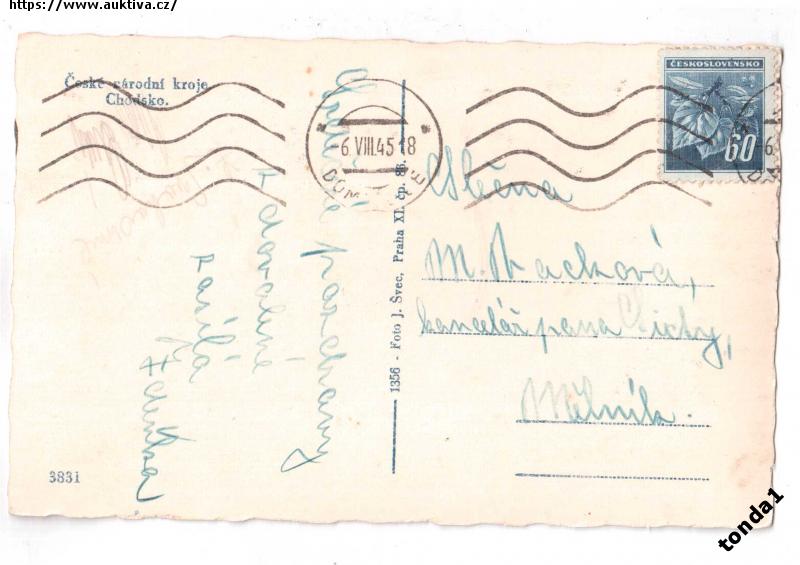 https://www.auktiva.cz/
České národní kroje
Chodsko.
pozdravy
z dovolené
zasílá
Zdenka.
3831
1356 - Foto J. Švec, Praha XI. čp. 86.
-6.VIII.45-18
ČESKOSLOVENSKO
60
Slečna
M.
kancelář pana Cichy,
Mělník.
tonda1